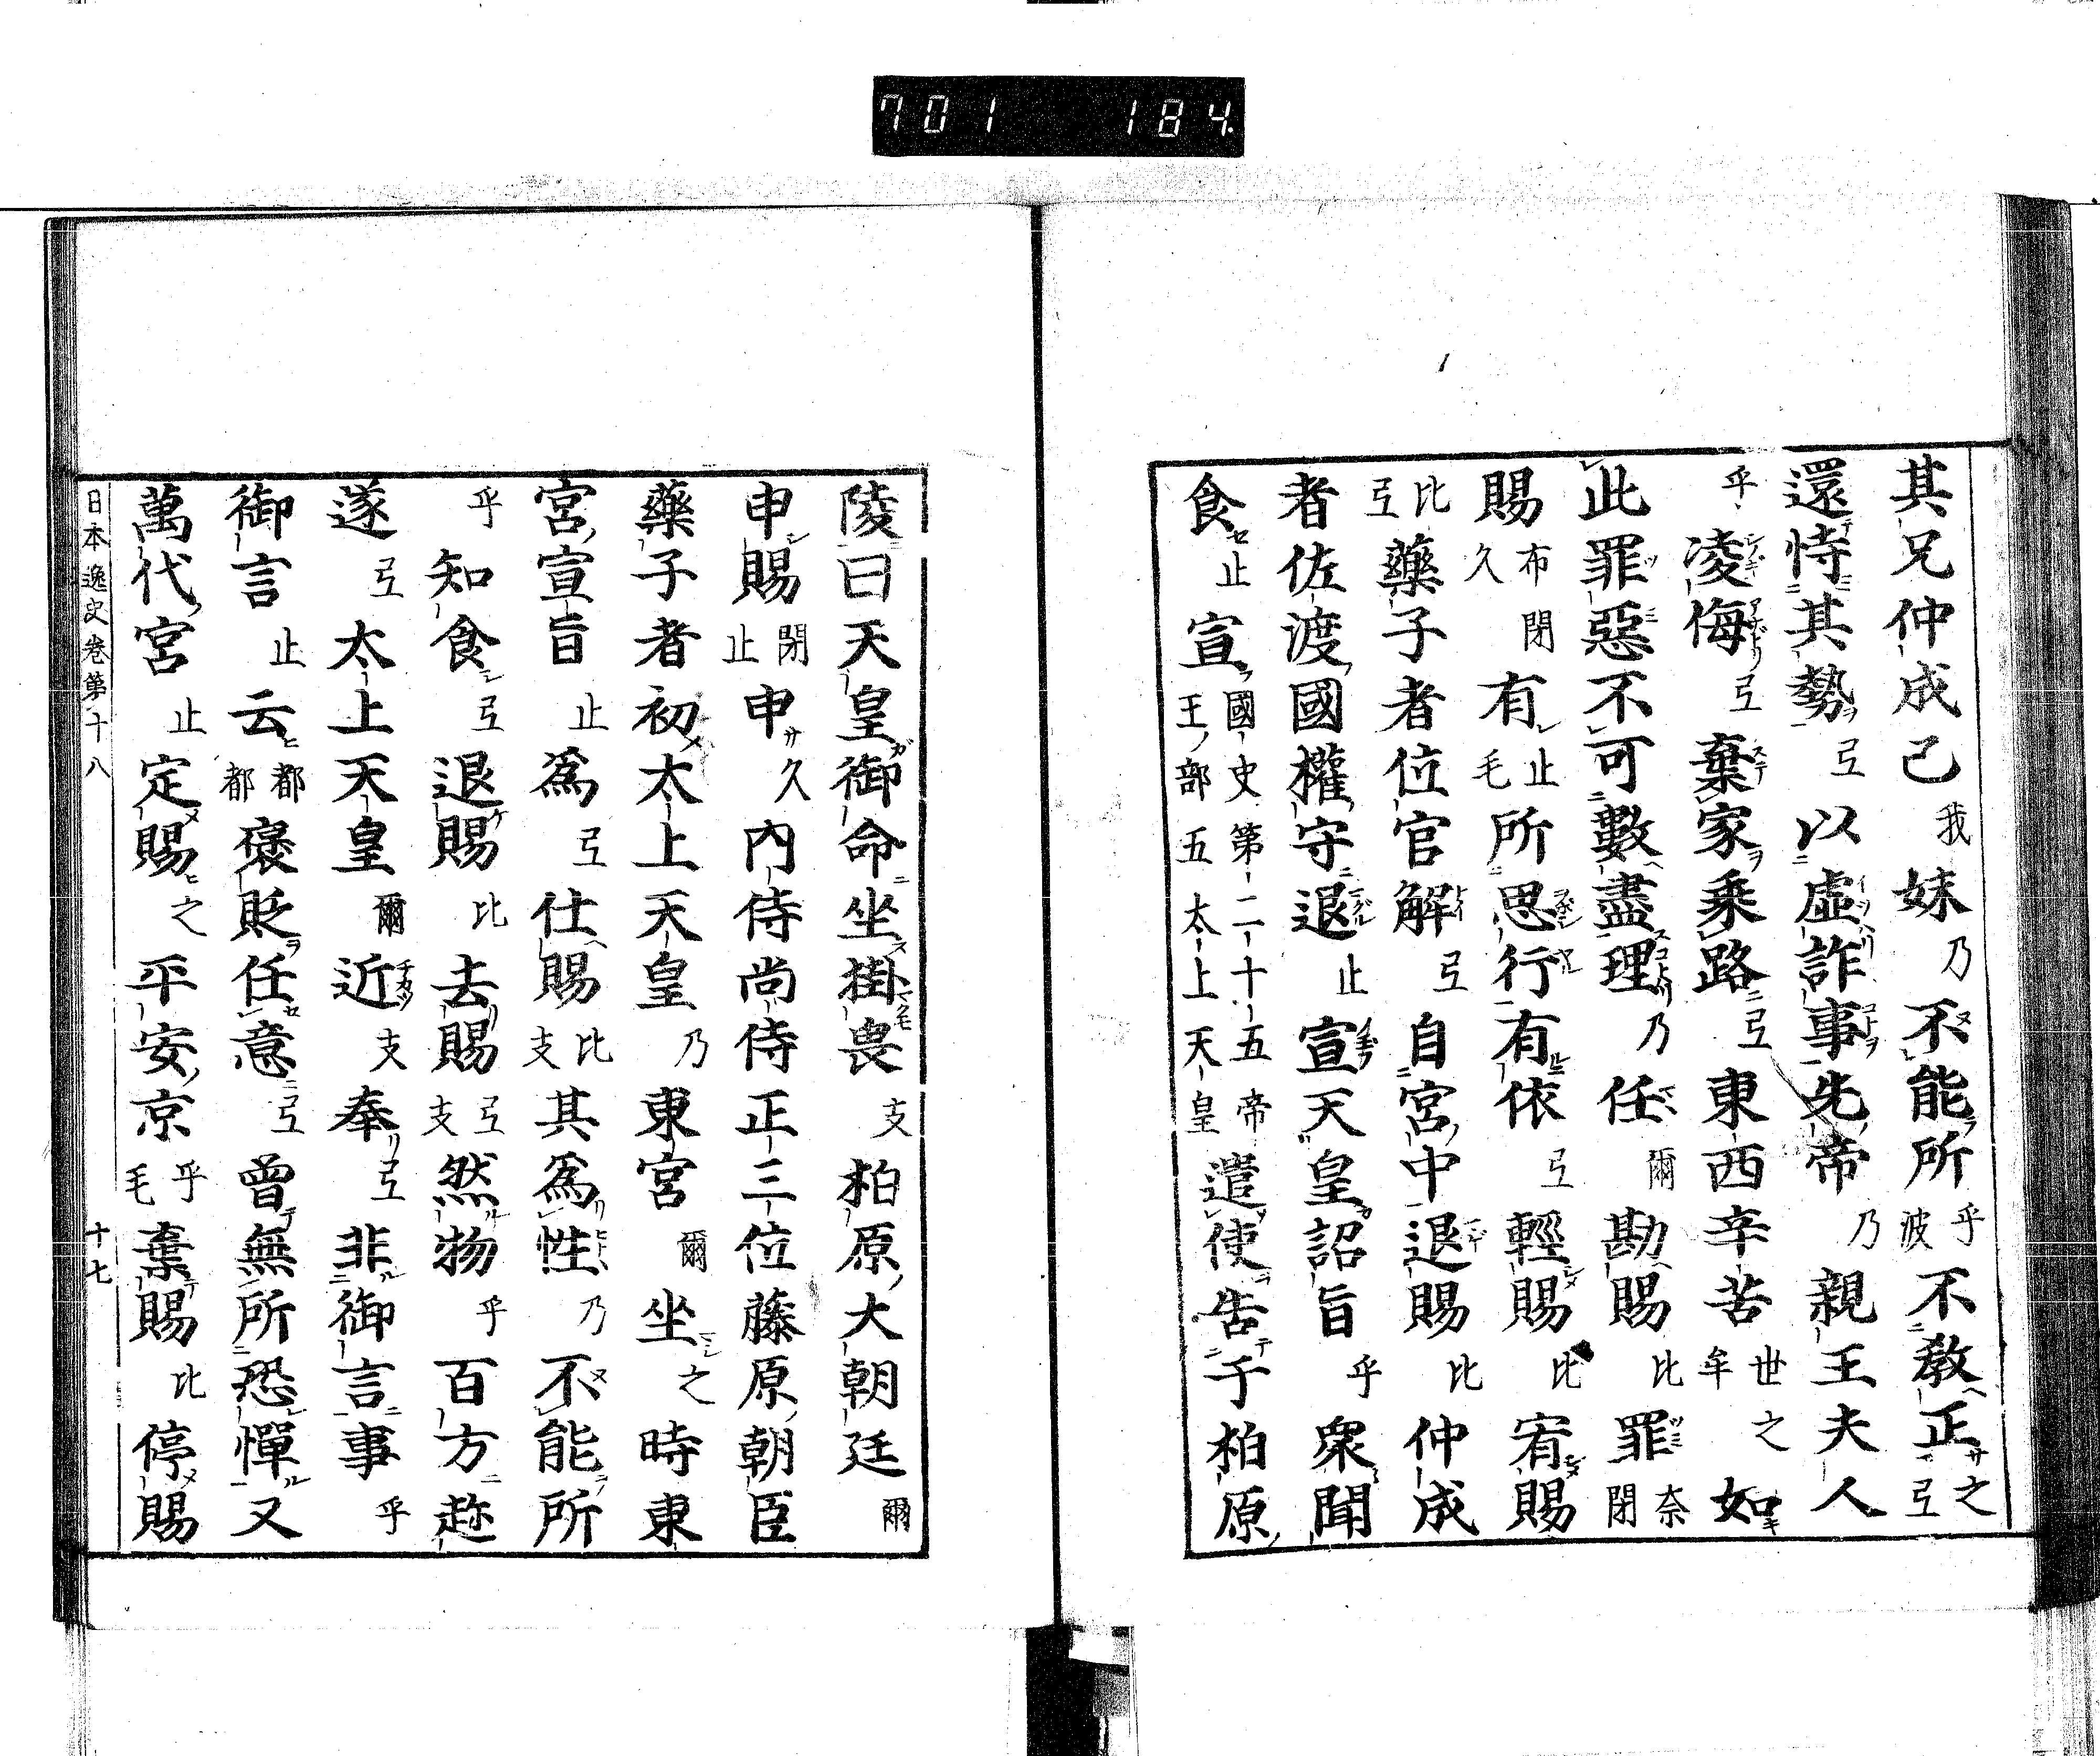 701 184
其兄仲成己我妹乃不能所乎波不教正之弖
還恃其勢弖以虛詐事先帝乃親王夫人
乎凌侮弖棄家乘路弖東西辛苦世牟之如
此罪惡不可數盡理乃任爾勘賜比罪奈閉
賜布久閉有止毛所思行有依弖輕賜比宥賜
比弖藥子者位官解弖自宮中退賜比仲成
者佐渡國權守退止宣天皇詔旨乎衆聞
食止宣國史第二十五帝王部五太上天皇遣使告于柏原
陵曰天皇御命坐掛畏支柏原大朝廷爾
申賜閉止申久內侍尚侍正三位藤原朝臣
藥子者初太上天皇乃東宮爾坐之時東
宮宣旨止爲弖仕賜比支其爲性乃不能所
乎知食弖退賜比去賜弖支然物乎百方趁
遂弖太上天皇爾近支奉弖非御言事乎
御言止云都都褒貶任意弖曾無所恐憚又
萬代宮止定賜之平安京乎毛棄賜比停賜
日本逸史卷第十八 十七